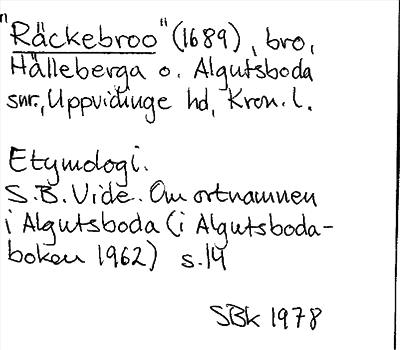 "Räckebroo" (1689), bro,
Hälleberga o. Algutsboda
snr., Uppvidinge hd, Kron. l.
Etymologi.
S.B. Vide. Om ortnamnen
i Algutsboda (i Algutsboda-
boken 1962) s. 14
SBk 1978